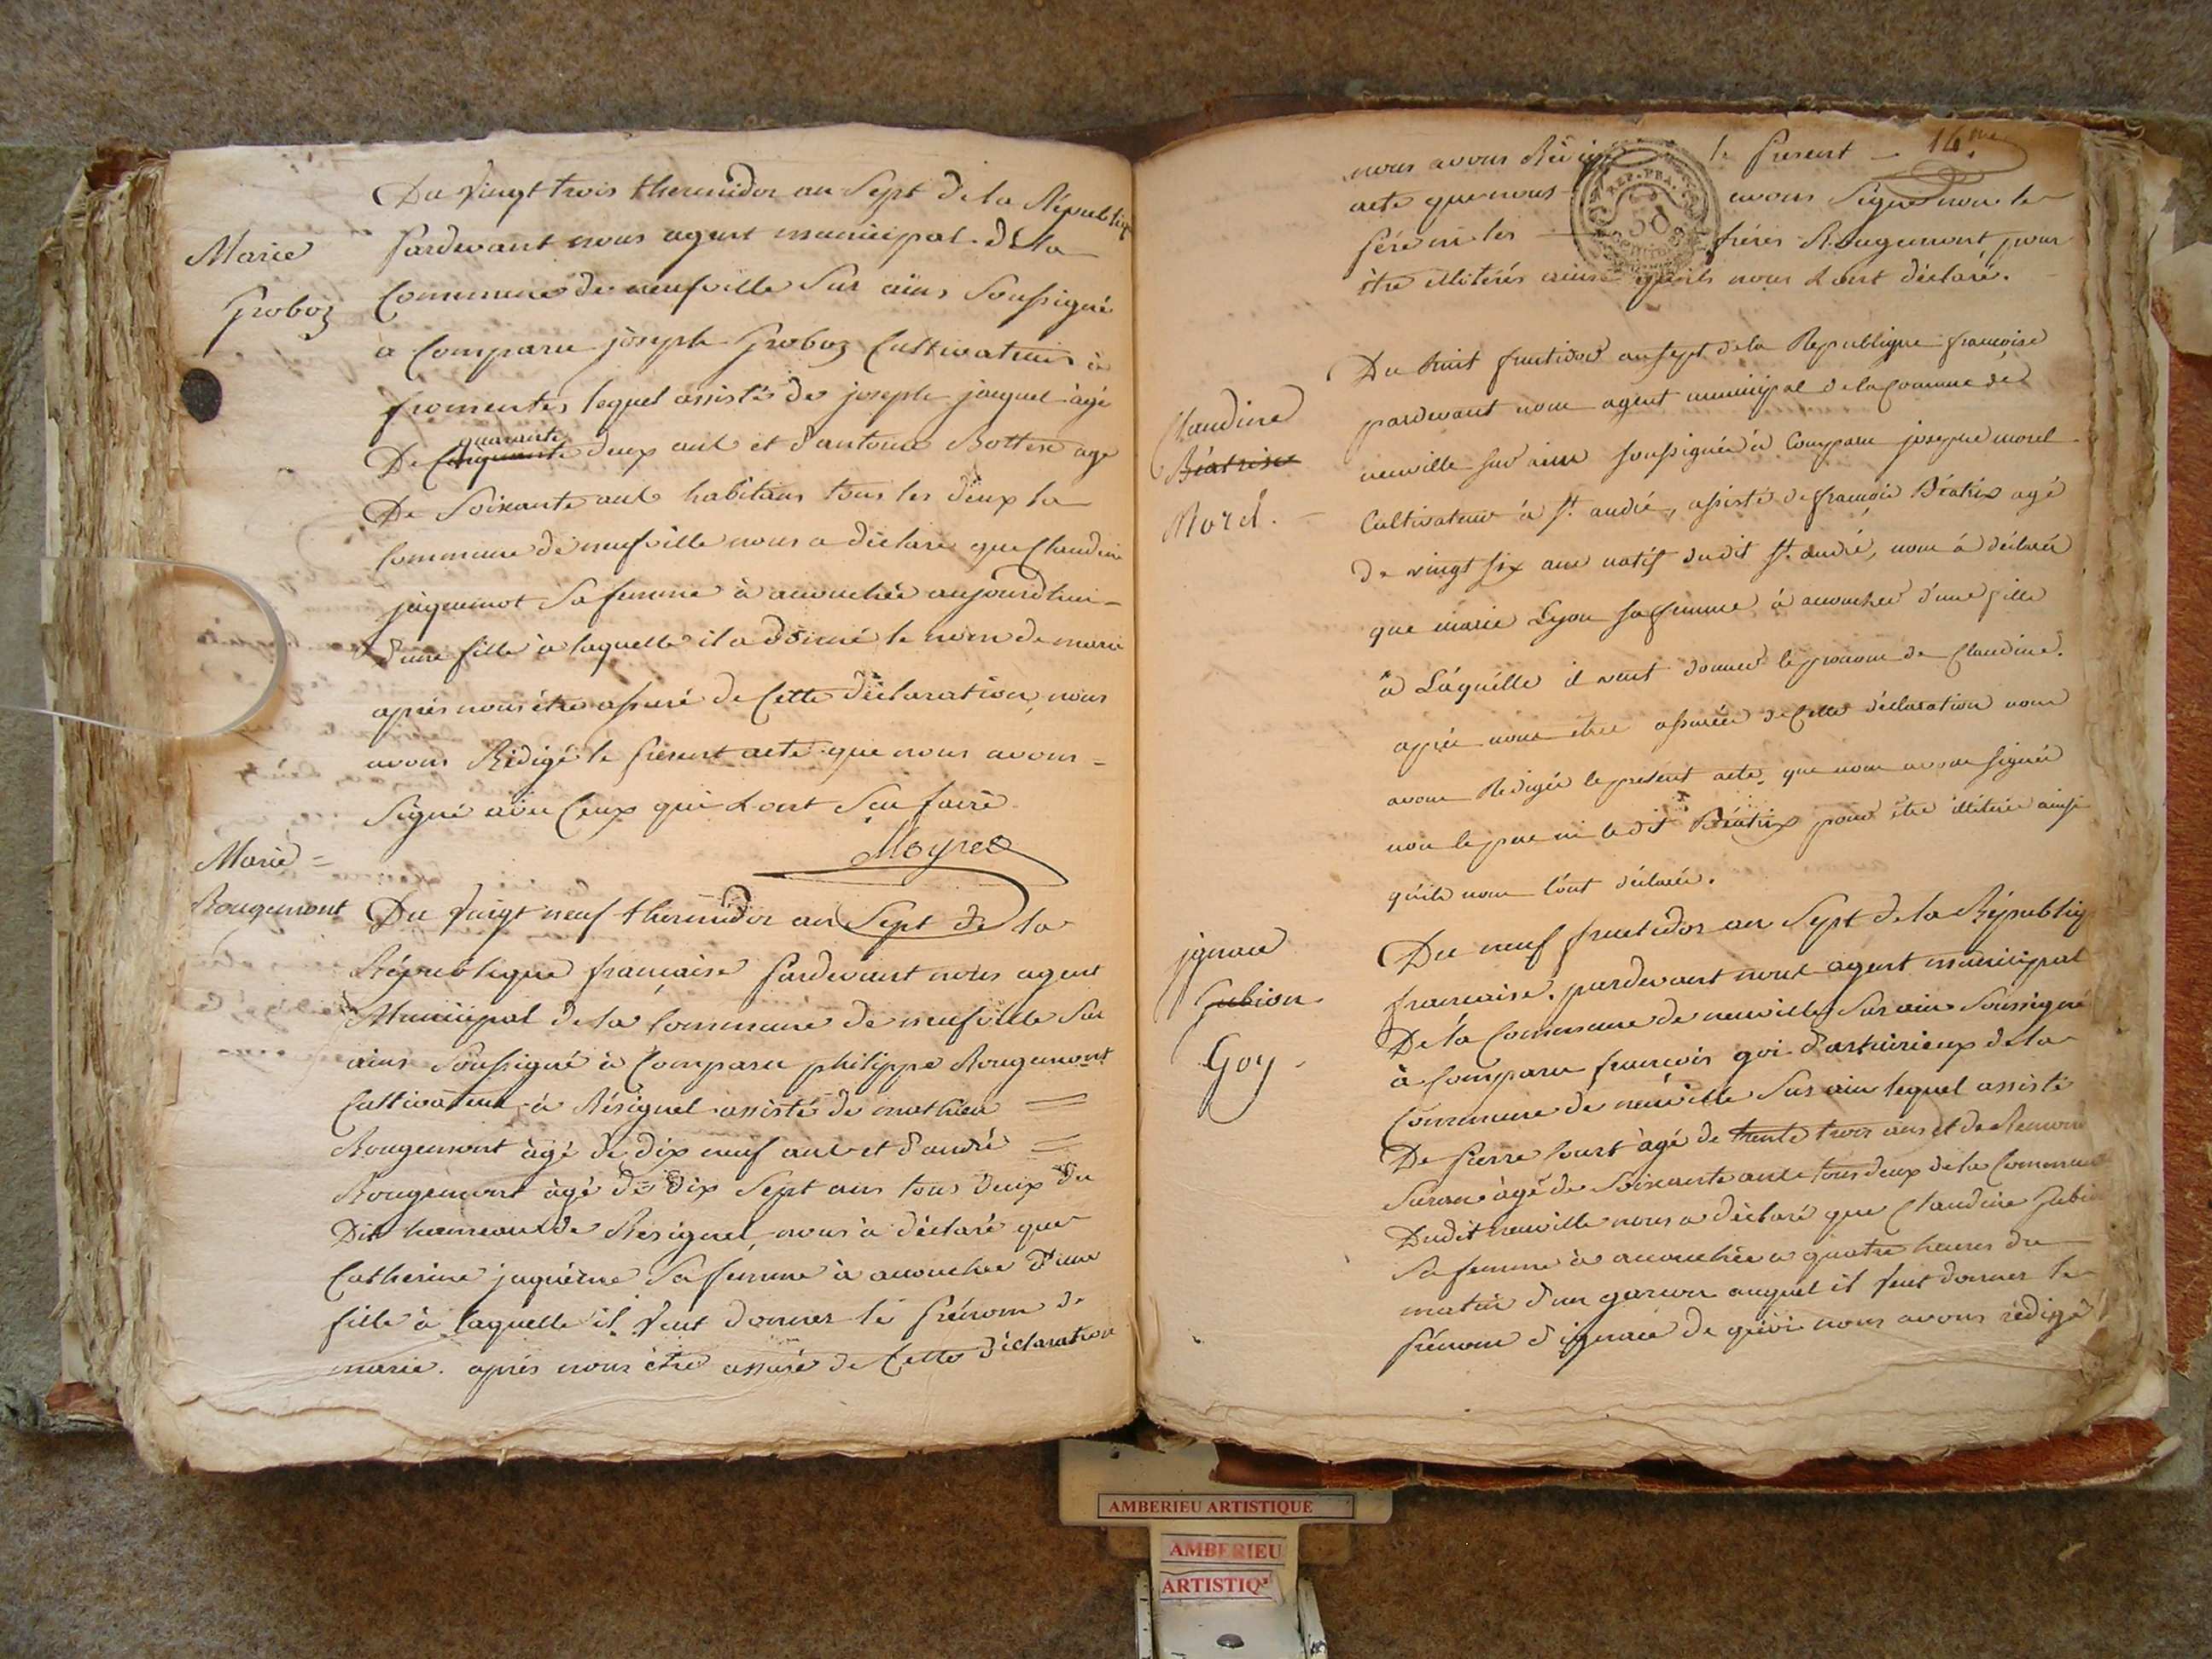 Du vingt trois thermidor an Sept de la Républiq
Marie
pardevant nous agent municipal de la
Groboz
Commune de neufville Sur ains Soussigné
a Comparu joseph Groboz Cultivateur à
fromentes lequel assisté de joseph jaquet agé
quarante
De Cinquante deux ans et d'antoine Bottex agé
De Soixante ans habitans tous les deux la
Commune de neufville nous a déclaré que Claudine
jaquemot Sa femme à acouchée aujourdhui
d'une fille à laquelle il a donné le nom de marie
après nous être assuré de Cette déclaration, nous
avons Rédigé le present acte que nous avons
Signé avec Ceux qui L'ont Sçu faire
Moyret
Marie
Rougemont
Du vingt neuf thermidor an Sept de la
République française pardevant nous agent
Municipal de la Commune de neufville Sur
ains Soussigné à Comparu philippe Rougemont
Cultivateur à Résignel assisté de mathieu
Rougemont âgé de dix neuf ans et d'andré
Rougemont âgé de dix Sept ans tous deux du
Dit hameau de Résignel, nous à déclaré que
Catherine Sa femme à acouchée d'une
fille à laquelle il veut donner le prénom de
marie. après nous être assuré de Cette déclaration
nous avons Rédigé le present 14.me
acte que nous avons Signé non le
père ni les frères Rougemont pour
être illitérés ainsi qu'ils nous L'ont déclaré.
REP. FRA.
50
Claudine
Béatrixe
Morel.
Du huit fructidor an sept de la Republique françoise
pardevant nous agent municipal de la Commune de
neuville sur ains soussignée à Comparu joseph morel
Cultivateur à St. andré, assisté de françois Béatrix agé
de vingt six ans natif dudit St. andré, nous à déclaré
que marie Lyon sa femme à acouchée d'une fille
à Laquelle il veut donner le prenom de Claudine.
après nous être assurée de Cette déclaration nous
avons Redigée le présent acte, que nous avons signée
non le pere ni le dit Béatrix pour être illitéré ainsi
qu'ils nous l'ont déclarée.
ignace
Gubian
Goy
Du neuf fructidor an Sept de la Républiq
francaise. pardevant nous agent municipal
De la Commune de neuville Sur ain Soussigné
à Comparu françois goi de la
Commune de neuville Sur ain lequel assisté
De pierre âgé de trente trois ans et de
âgé de Soixante ans tous deux de la Commune
Dudit neuville nous a déclaré que Claudine
Sa femme à acouchée a quatre heures du
matin d'un garcon auquel il veut donner le
prénom d'ignace de nous avons rédigé
AMBERIEU ARTISTIQUE
AMBERIEU
ARTISTIQ